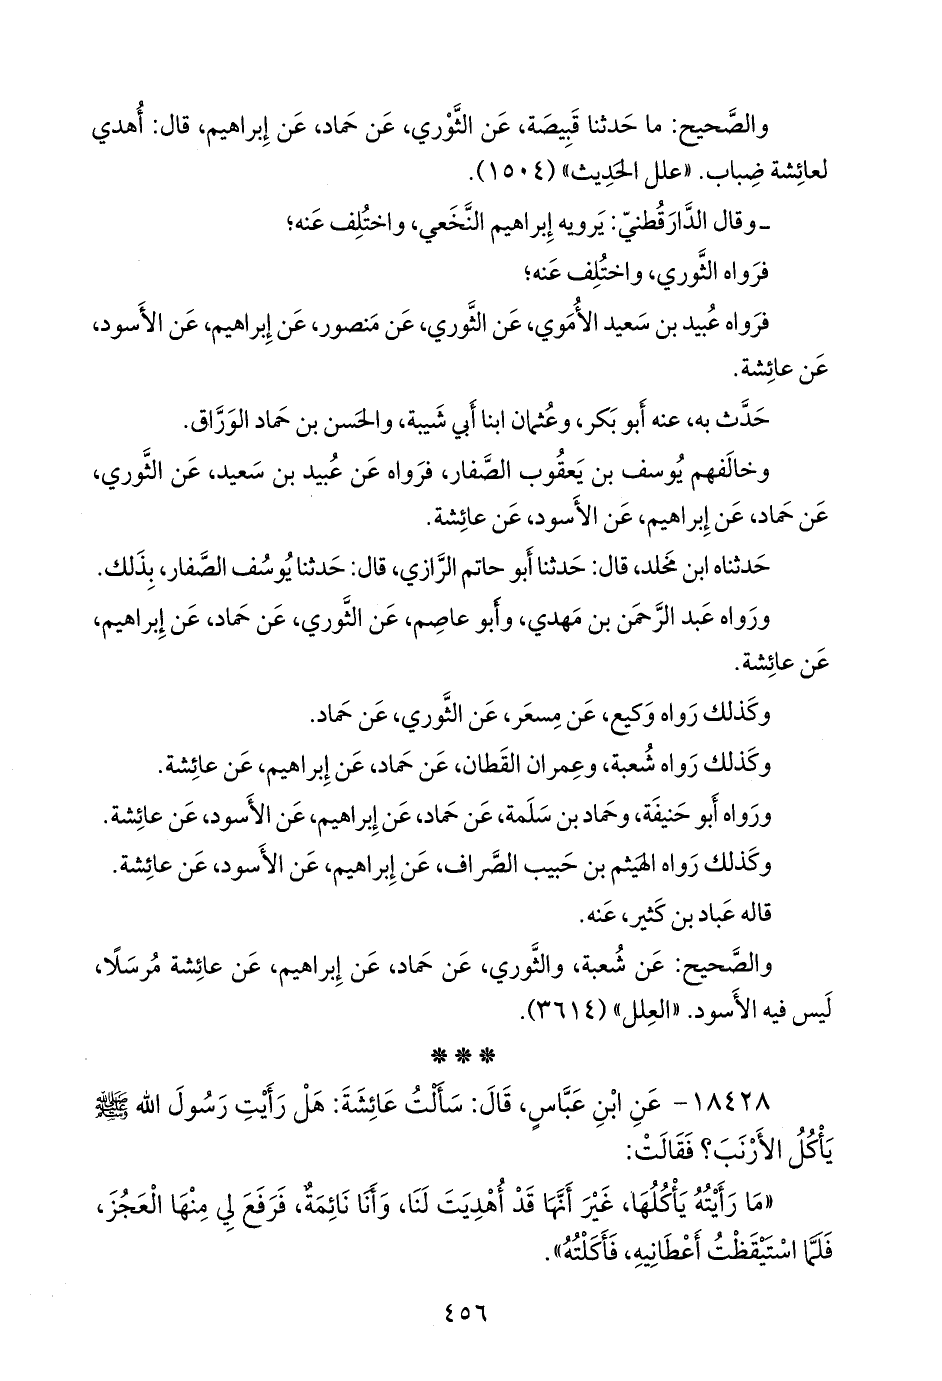 والصَّحيح: ما حَدثنا قَبِيصَة، عَن الثَّوْري، عَن حَماد، عَن إِبراهيم، قال: أُهدي
لعائِشة ضِباب. «علل الحَدِيث» (١٥٠٤).
ـ وقال الدَّارَقُطنيّ: يَرويه إِبراهيم النَّخَعي، واختُلِف عَنه؛
فرَواه الثَّوري، واختُلِف عَنه؛
فرَواه عُبيد بن سَعيد الأُمَوي، عَن الثَّوري، عَن مَنصور، عَن إِبراهيم، عَن الأَسود،
عَن عائِشة.
حَدَّث به، عنه أَبو بَكر، وعُثمان ابنا أَبي شَيبة، والحَسن بن حَماد الوَرَّاق.
وخالَفهم يُوسف بن يَعقُوب الصَّفار، فرَواه عَن عُبيد بن سَعيد، عَن الثَّوري،
عَن حَماد، عَن إِبراهيم، عَن الأَسود، عَن عائِشة.
حَدثناه ابن مَخلد، قال: حَدثنا أَبو حاتم الرَّازي، قال: حَدثنا يُوسُف الصَّفار، بِذَلك.
ورَواه عَبد الرَّحمَن بن مَهدي، وأَبو عاصِم، عَن الثَّوري، عَن حَماد، عَن إِبراهيم،
عَن عائِشة.
وكَذلك رَواه وَكيع، عَن مِسعَر، عَن الثَّوري، عَن حَماد.
وكَذلك رَواه شُعبة، وعِمران القَطان، عَن حَماد، عَن إِبراهيم، عَن عائِشة.
ورَواه أَبو حَنيفَة، وحَماد بن سَلَمة، عَن حَماد، عَن إِبراهيم، عَن الأَسود، عَن عائِشة.
وكَذلك رَواه الهَيثم بن حَبيب الصَّراف، عَن إِبراهيم، عَن الأَسود، عَن عائِشة.
قاله عَباد بن كَثير، عَنه.
والصَّحيح: عَن شُعبة، والثَّوري، عَن حَماد، عَن إِبراهيم، عَن عائِشة مُرسَلًا،
لَيس فيه الأَسود. «العِلل» (٣٦١٤).
* * *
١٨٤٢٨- عَنِ ابْنِ عَبَّاسٍ، قَالَ: سَأَلْتُ عَائِشَةَ: هَلْ رَأَيْتِ رَسُولَ الله ﷺ
يَأْكُلُ الأَرْنَبَ؟ فَقَالَتْ:
«مَا رَأَيْتُهُ يَأْكُلُهَا، غَيْرَ أَنَّهَا قَدْ أُهْدِيَتَ لَنَا، وَأَنَا نَائِمَةٌ، فَرَفَعَ لِي مِنْهَا الْعَجُزَ،
فَلَمَّا اسْتَيْقَظْتُ أَعْطَانِيهِ، فَأَكَلْتُهُ».
٤٥٦